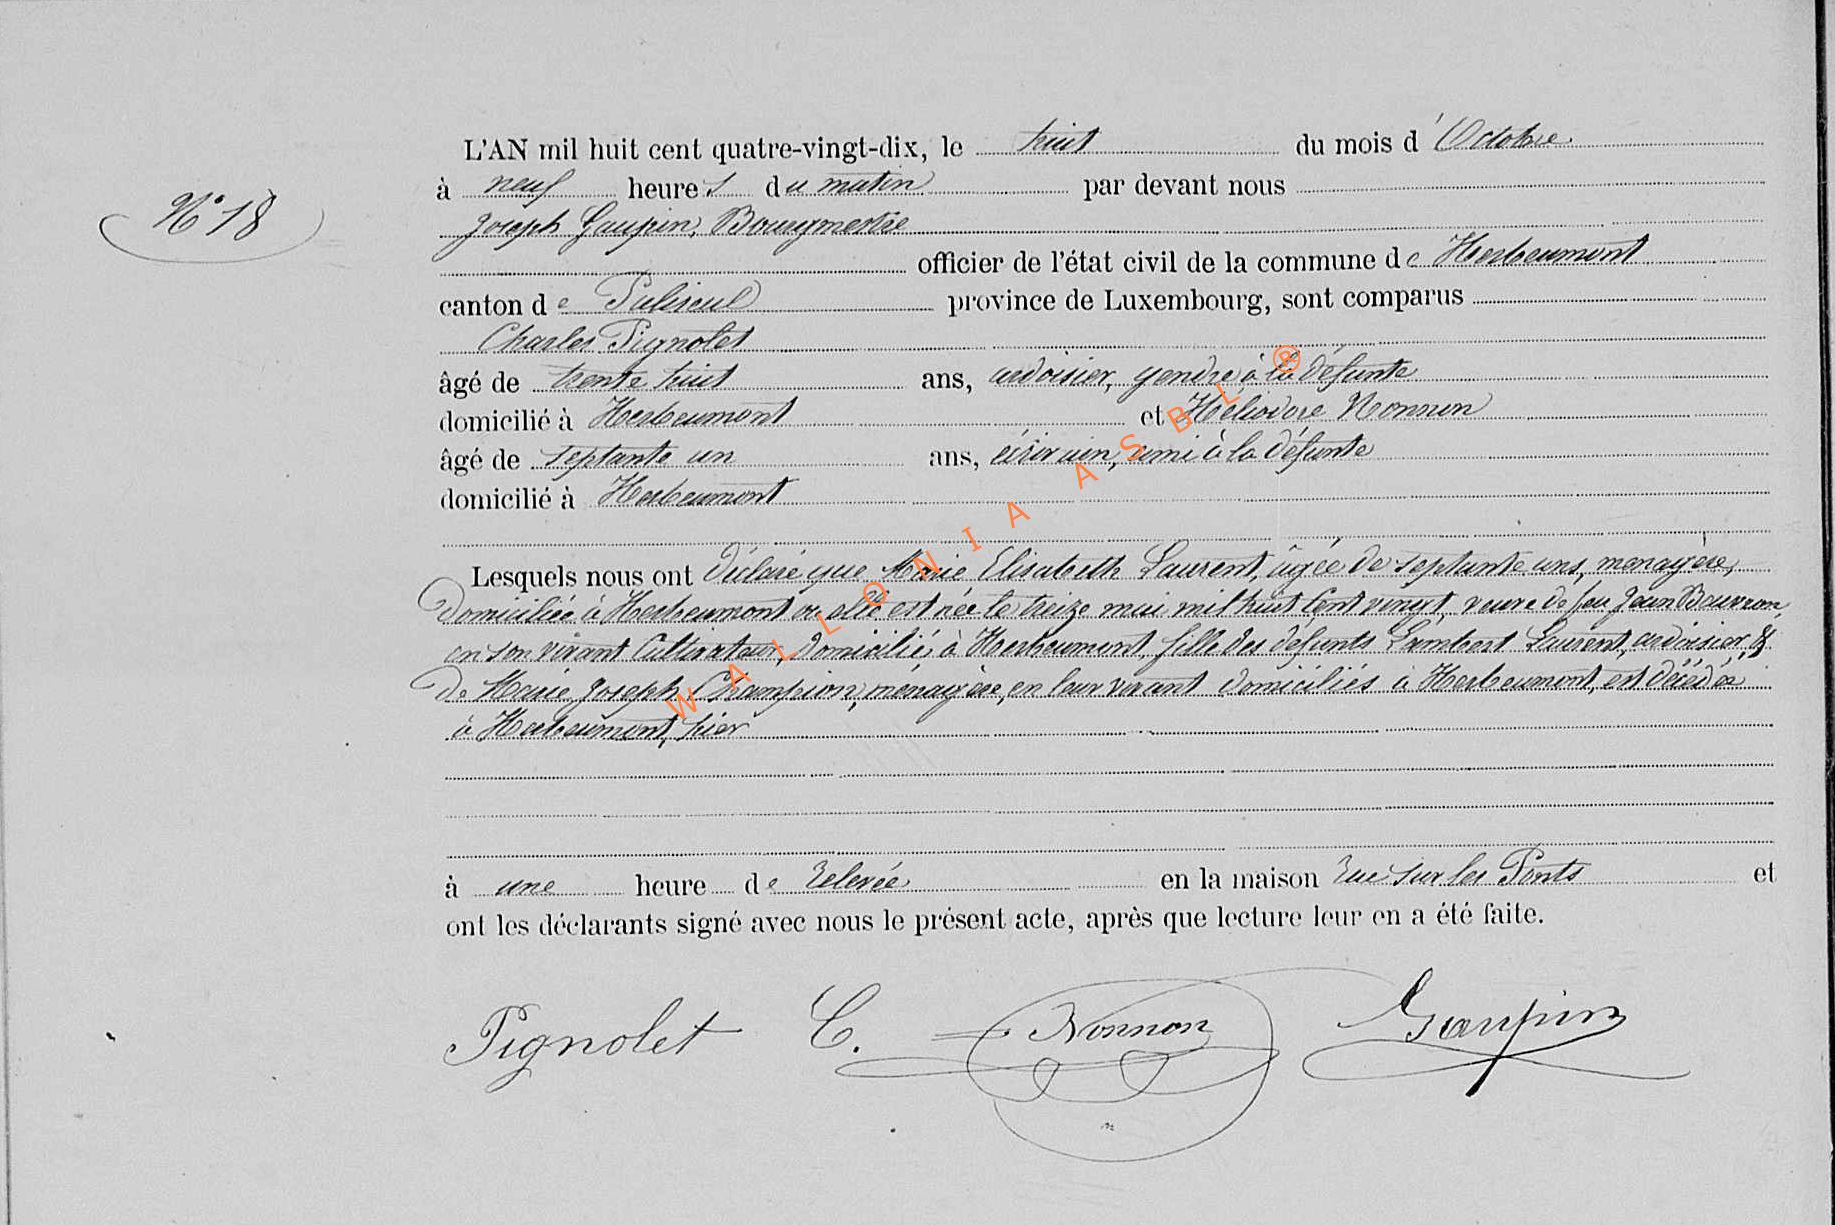 L'AN mil huit cent quatre-vingt-dix, le huit du mois d'Octobre
à neuf heures du matin par devant nous
N° 18
Joseph Gaupin, Bourgmestre
officier de l'état civil de la commune de Herbeumont
canton de Paliseul province de Luxembourg, sont comparus
Charles Pignolet
âgé de trente huit ans, ardoisier, gendre à la défunte
domicilié à Herbeumont et Héliodore Nonnon
âgé de septante un ans, écrivain, ami à la défunte
domicilié à Herbeumont
Lesquels nous ont déclaré que Marie Elisabeth Laurent, âgée de septante ans, ménagère,
domiciliée à Herbeumont où elle est née le treize mai mil huit cent vingt, veuve de feu Jean
en son vivant Cultivateur, domiciliés à Herbeumont, fille des défunts Lambert Laurent, ardoisier &
de Marie Joseph Champion, ménagère, en leur vivant domiciliés à Herbeumont, est décédée
à Herbeumont, hier
à une heure de relevée en la maison rue sur les Ponts et
ont les déclarants signé avec nous le présent acte, après que lecture leur en a été faite.
Pignolet C. Nonnon Gaupin
WALLONIA ASBL ®